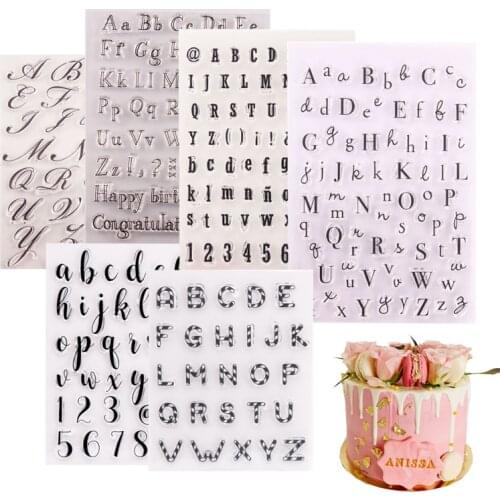 A B
E F
I J
M N
Q R
U V
Y
Aa Bb Cc Dd Ee
Ff Gg Hh
Kk Ll M
Pp Qq R
Uu Vv W
Zz ! , ?
Happy birt
Congratulat
@ A B C D
I J K L M N
Q R S T U
Y Z ( ) ! &
b c d e f g
k l m n ñ o
s t u v w x
1 2 3 4 5 6
A a a B b b C c c
D d d E e e F f f
G g g H h h I i i
j J j k K k L l l
M m m N n n O o o P p p
Q q q R r r S s s T t
U u u V v v W w w
X x x Y y y Z z z
a b c d e
f g h i j k
o p q r
u v w x
1 2 3 @
5 6 7 8
A B C D E
F G H I J K
L M N O P
Q R S T U
V W X Y Z
ANISSA